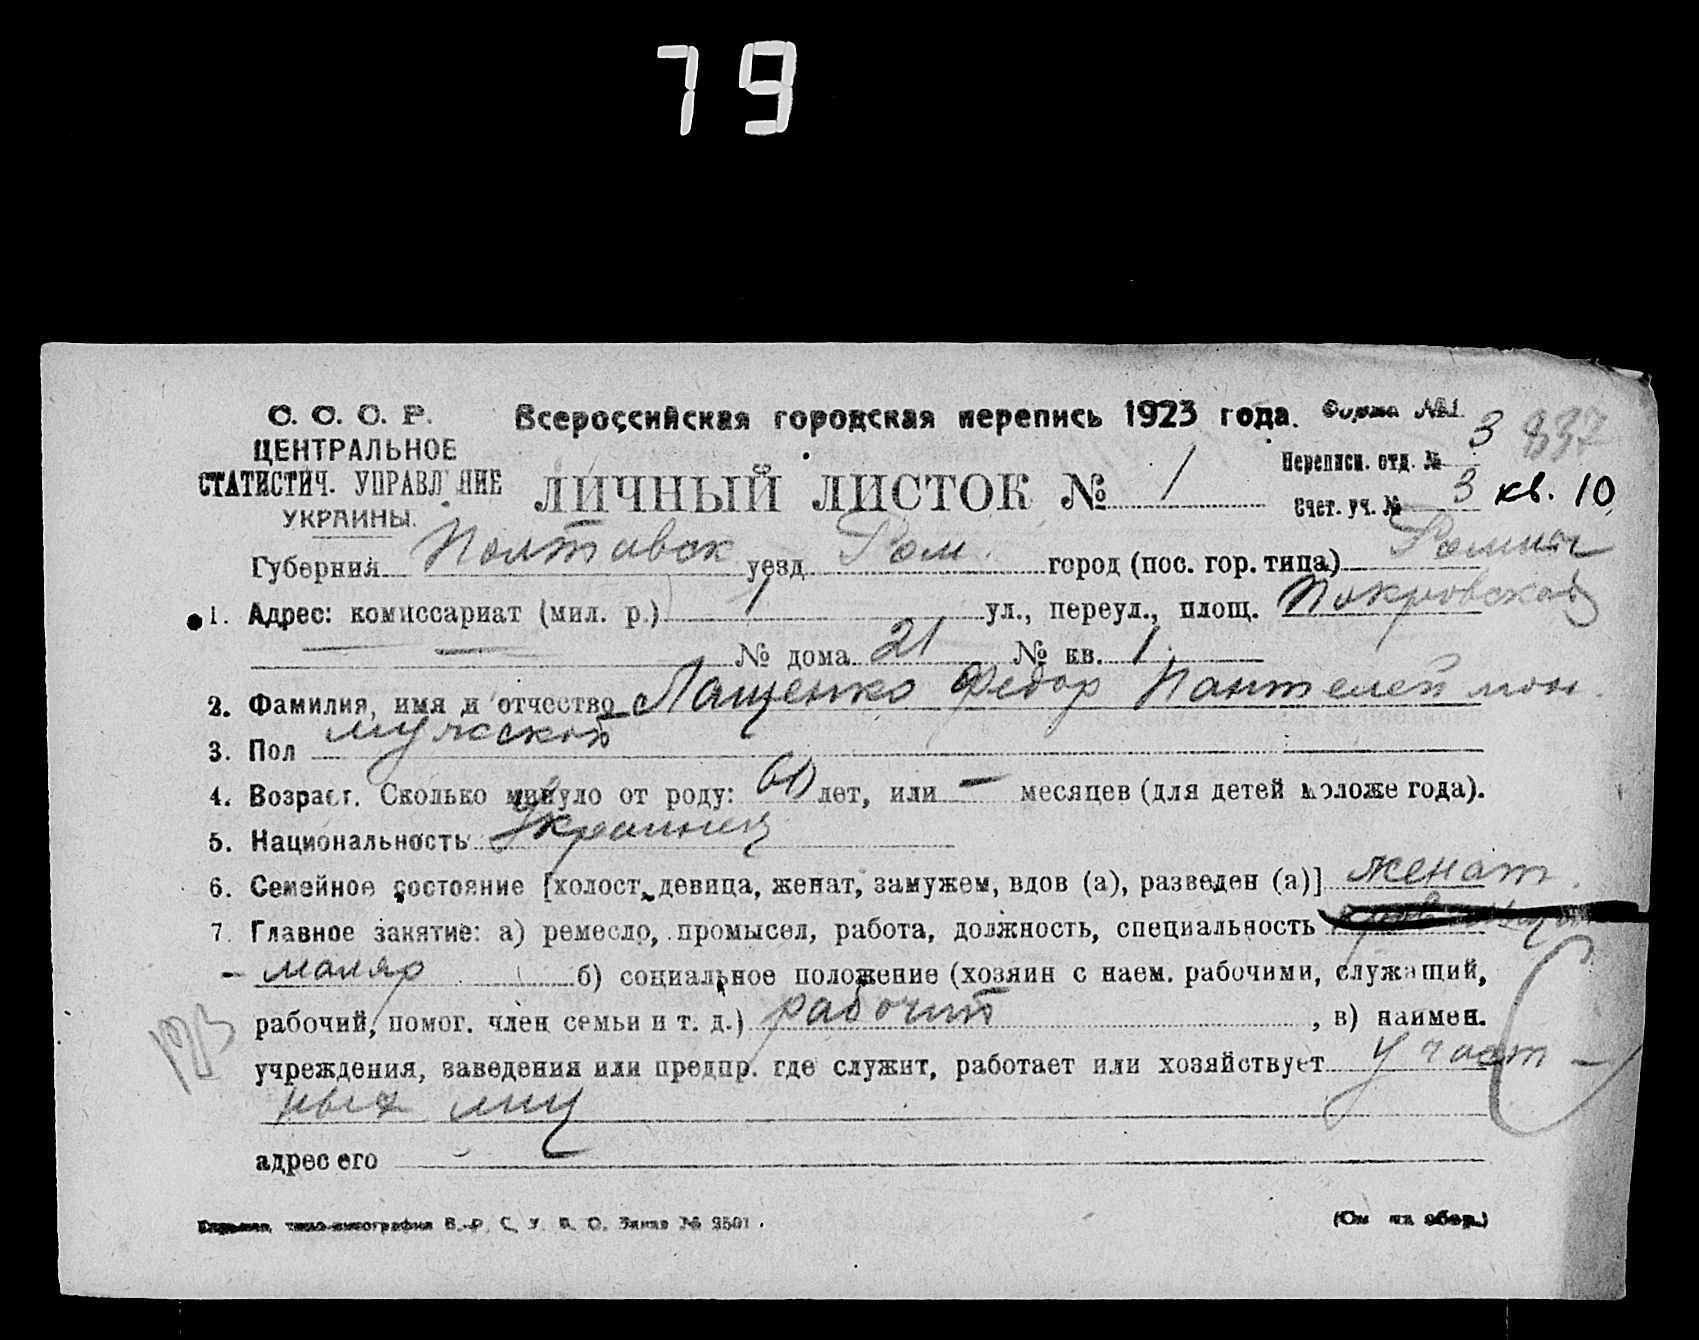 79
С. С. С. Р. Всероссийская городская перепись 1923 года. Форма №1.
ЦЕНТРАЛЬНОЕ
СТАТИСТИЧ. УПРАВЛЕНИЕ
УКРАИНЫ.
ЛИЧНЫЙ ЛИСТОК № 1
Переписн. отд. № 3 837
Счет. уч. № 3 кв. 10
Губерния Полтавск уезд Ром. город (пос. гор. типа) Ромны
1. Адрес: комиссариат (мил. р.) 1 ул., переул., площ. Покровской
№ дома 21 № кв. 1.
2. Фамилия, имя и отчество Лащенко Федор Пантелеймон.
3. Пол мужской
4. Возраст. Сколько минуло от роду: 60 лет, или – месяцев (для детей моложе года).
5. Национальность Украинец
6. Семейное состояние [холост, девица, женат, замужем, вдов (а), разведен (а)] женат.
7. Главное занятие: а) ремесло, промысел, работа, должность, специальность
- маляр б) социальное положение (хозяин с наем. рабочими, служащий,
рабочий, помог. член семьи и т. д.) рабочий, в) наимен.
учреждения, заведения или предпр. где служит, работает или хозяйствует у част-
ных лиц
адрес его
типо-литография В. Р. С. У. В. О. Заказ № 2501.
(См на обор.)